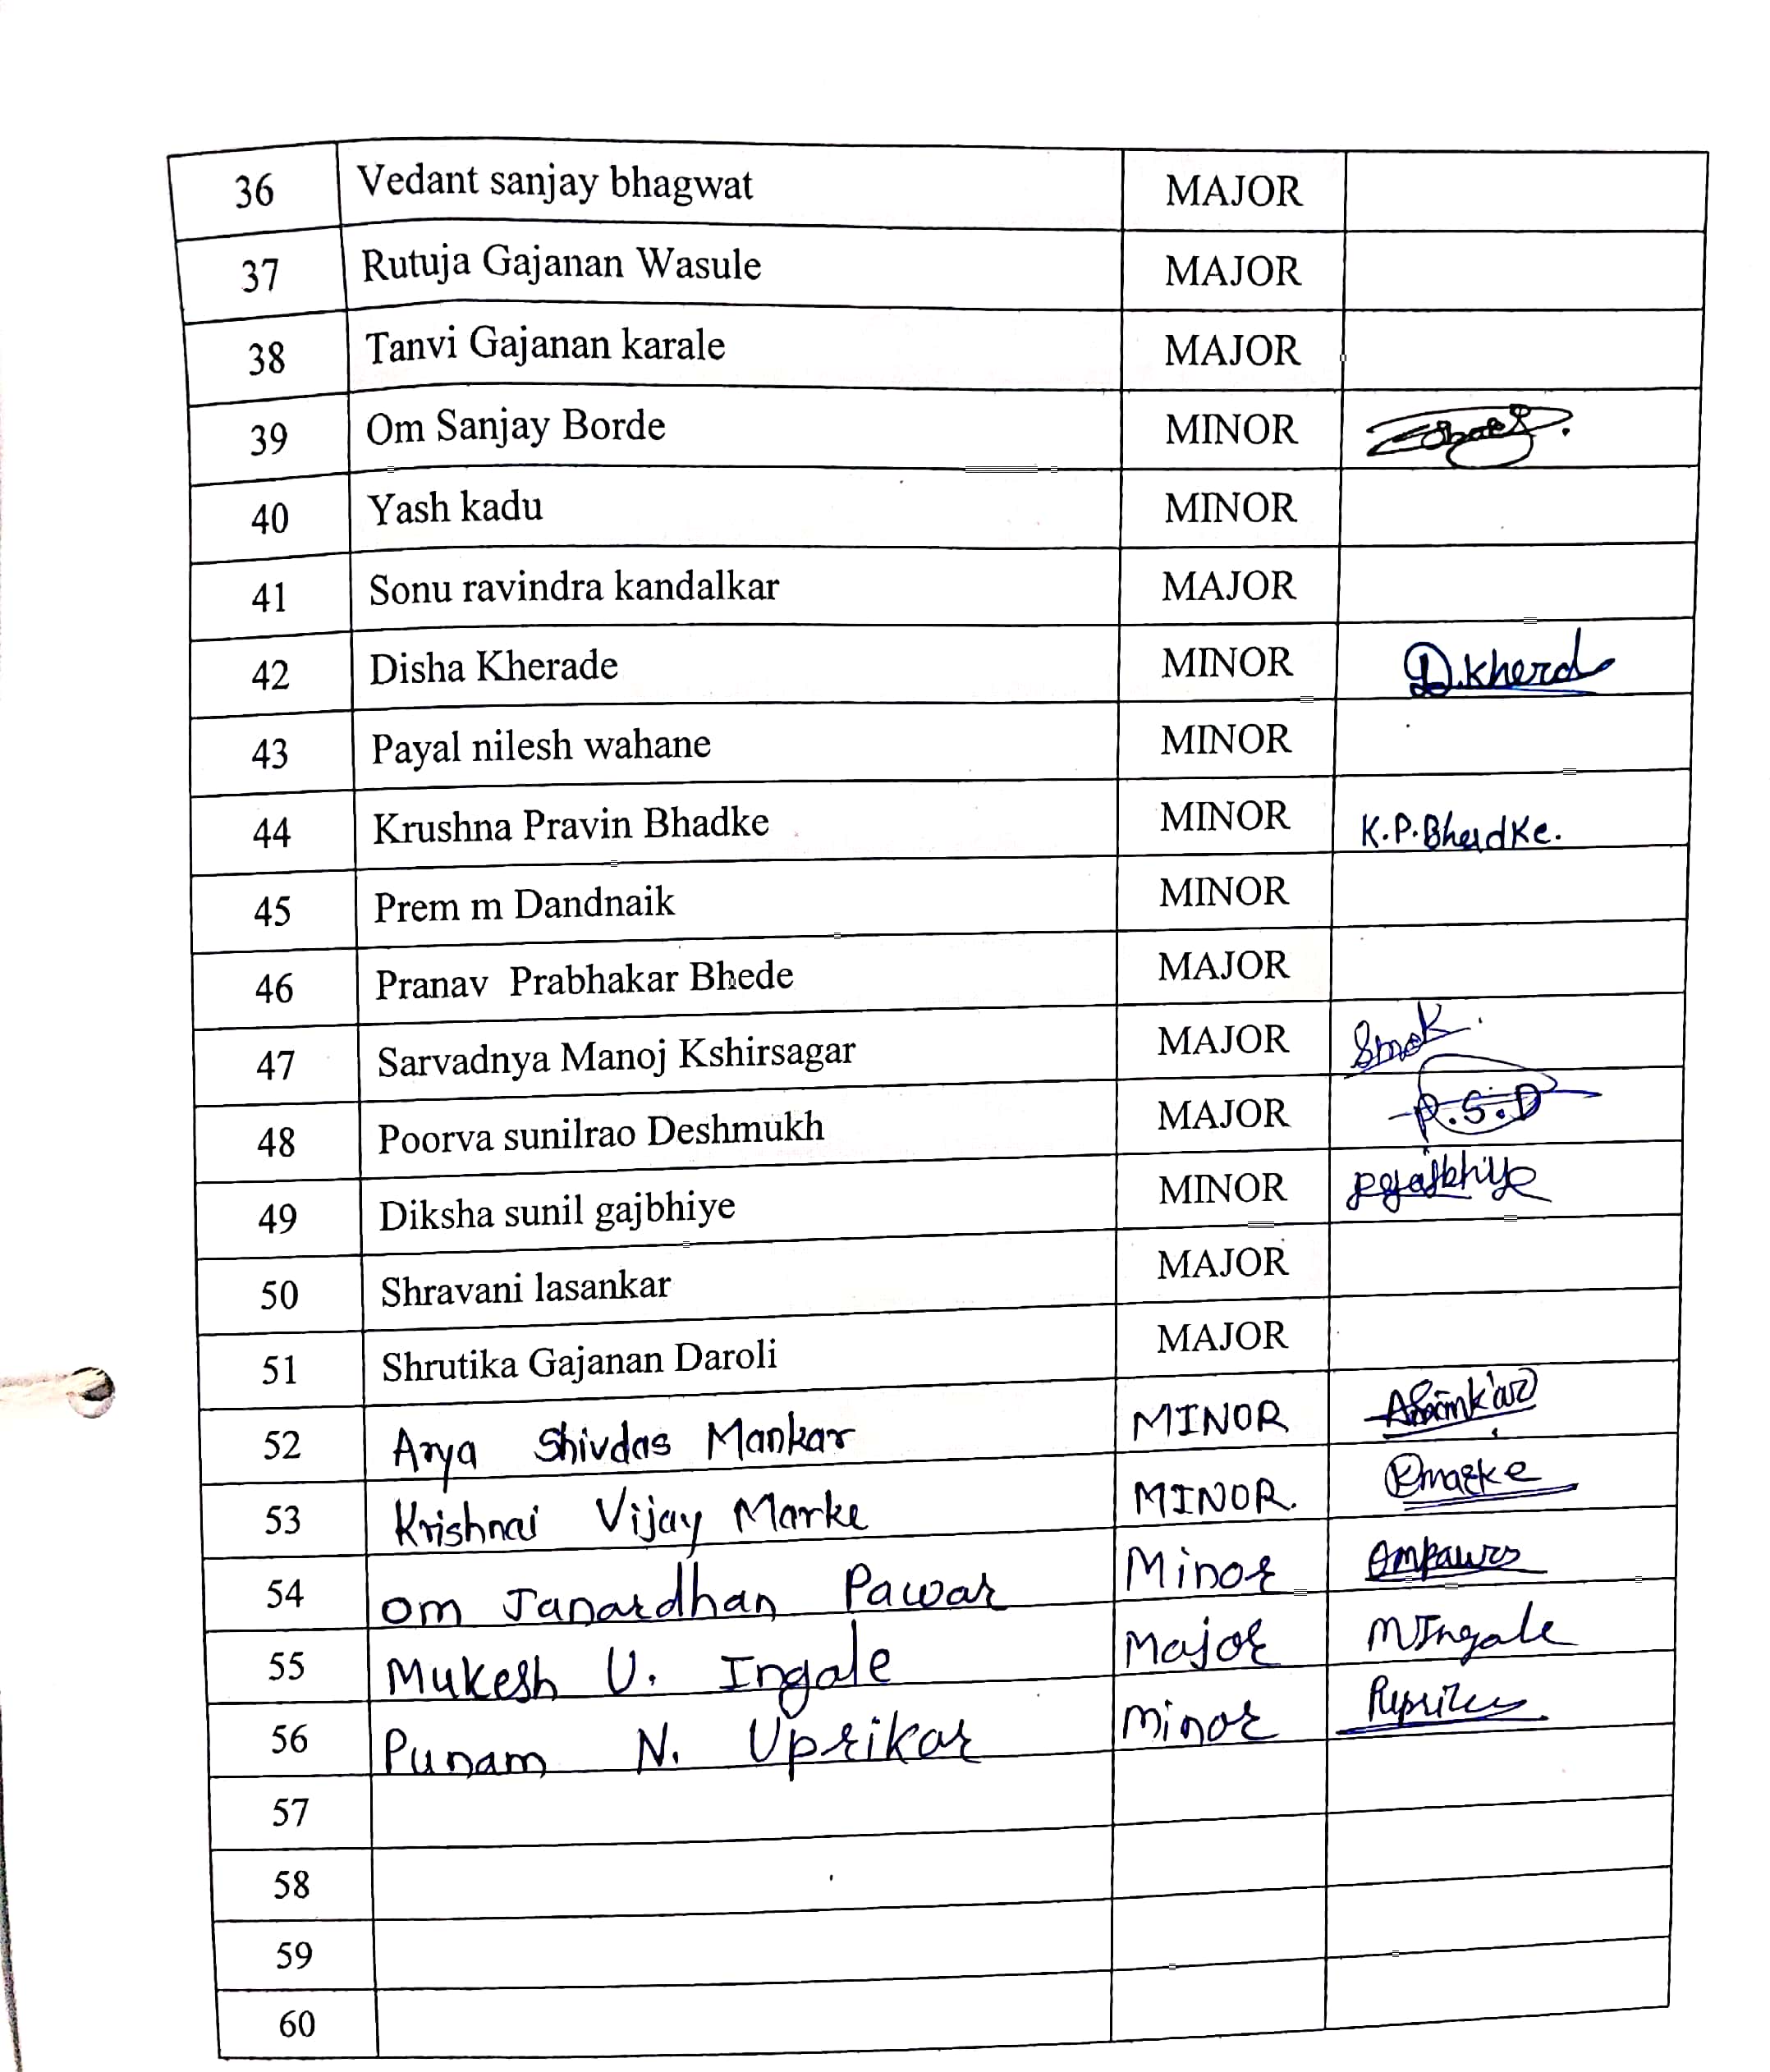 36 Vedant sanjay bhagwat MAJOR
37 Rutuja Gajanan Wasule MAJOR
38 Tanvi Gajanan karale MAJOR
39 Om Sanjay Borde MINOR
40 Yash kadu MINOR
41 Sonu ravindra kandalkar MAJOR
42 Disha Kherade MINOR D.Kherd
43 Payal nilesh wahane MINOR
44 Krushna Pravin Bhadke MINOR K.P.Bhadke.
45 Prem m Dandnaik MINOR
46 Pranav Prabhakar Bhede MAJOR
47 Sarvadnya Manoj Kshirsagar MAJOR
48 Poorva sunilrao Deshmukh MAJOR P.S.D
49 Diksha sunil gajbhiye MINOR
50 Shravani lasankar MAJOR
51 Shrutika Gajanan Daroli MAJOR
52 Arya Shivdas Mankar MINOR
53 Krishnai Vijay Marke MINOR. Kmarke
54 om Janardhan Pawar Minor
55 Mukesh U. Ingale Major MIngale
56 Punam N. Uprikar Minor
57
58
59
60